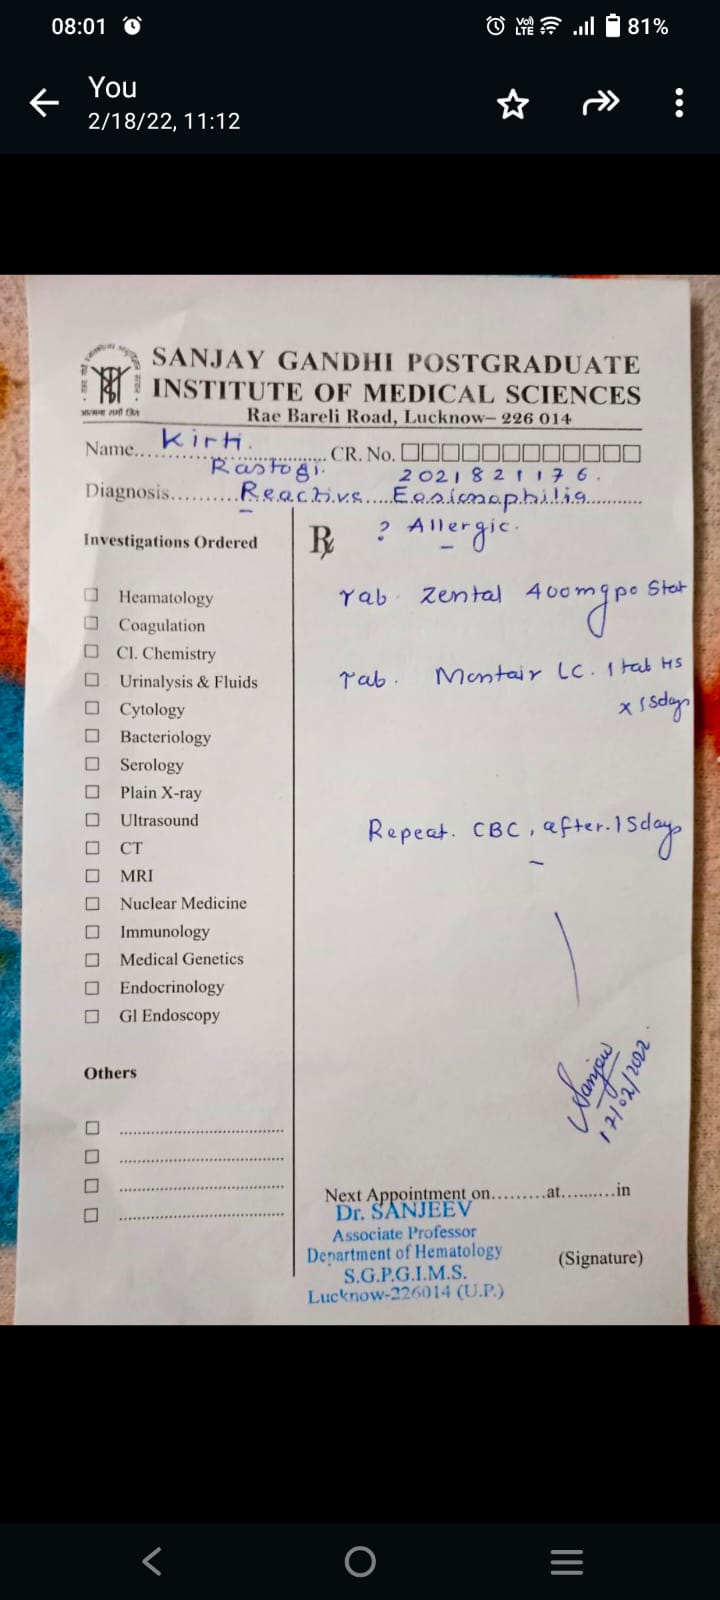 08:01
VoLTE 81%
You
2/18/22, 11:12
SANJAY GANDHI POSTGRADUATE
INSTITUTE OF MEDICAL SCIENCES
Rae Bareli Road, Lucknow– 226 014
Name.... Kirti Rastogi. CR. No. 2021821176.
Diagnosis.......... Reactive Eosionophilia
? Allergic.
Investigations Ordered
Rx
Heamatology
Coagulation
Cl. Chemistry
Urinalysis & Fluids
Cytology
Bacteriology
Serology
Plain X-ray
Ultrasound
CT
MRI
Nuclear Medicine
Immunology
Medical Genetics
Endocrinology
GI Endoscopy
Others
Tab. Zental 400mg po Stat
Tab. Montair LC. 1 tab HS
x 15days
Repeat. CBC, after. 15days
Sanjeev
17/02/2022.
Next Appointment on.........at..........in
Dr. SANJEEV
Associate Professor
Department of Hematology
S.G.P.G.I.M.S.
Lucknow-226014 (U.P.)
(Signature)